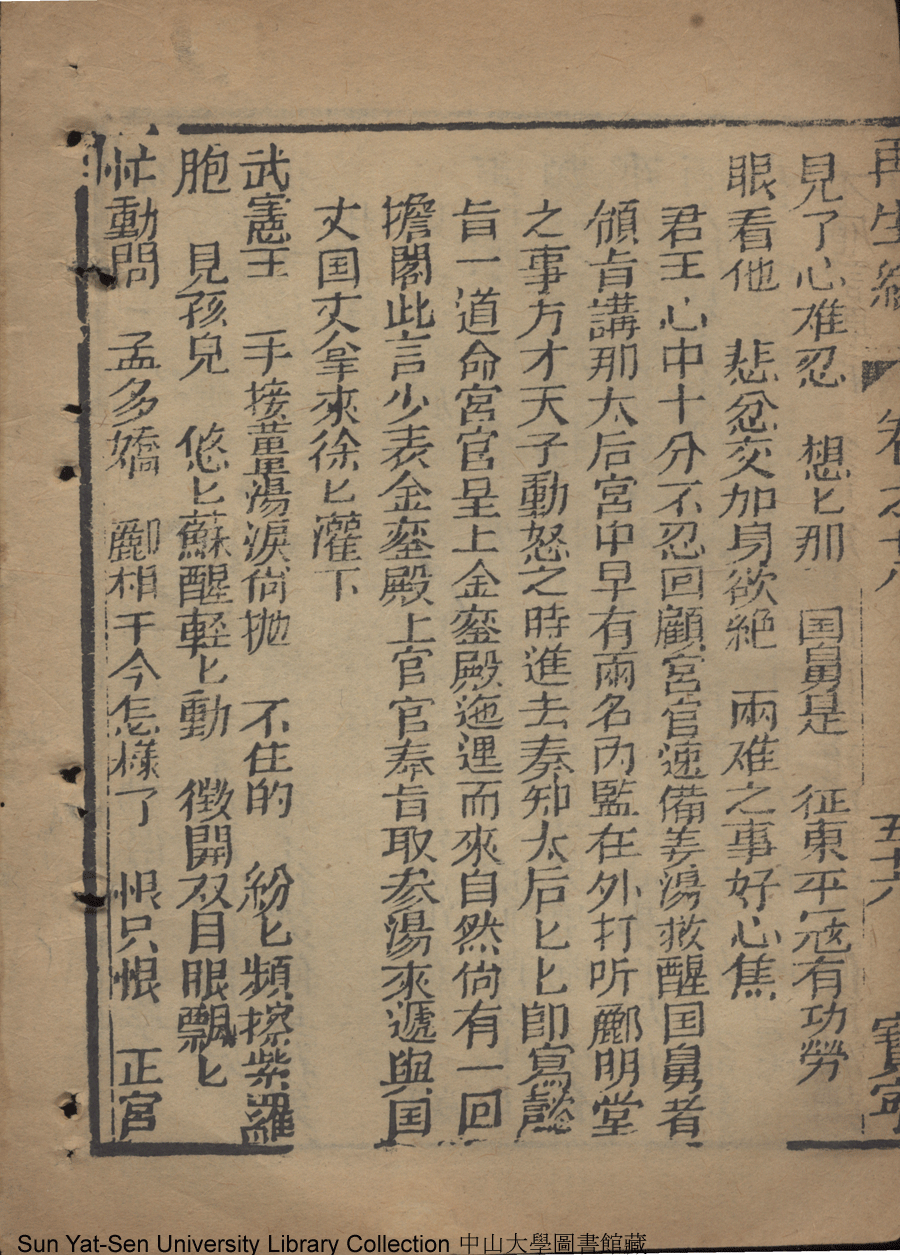 再生緣 卷之十八 五十六 寶寧
見了心难忍 想匕那 国舅是 征東平冦有功勞
眼看他 悲忿交加身欲絕 兩难之事好心焦
君王心中十分不忍回顧宮官速備姜湯救醒国舅者
頒旨講那太后宮中早有兩名內監在外打听酈明堂
之事方才天子動怒之時進去奏知太后匕匕即寫懿
旨一道命宮官呈上金鑾殿迤逦而來自然尙有一回
擔閣此言少表金鑾殿上官官奉旨取参湯來遞與国
丈国丈拿來徐匕灌下
武憲王 手接薑湯淚尙抛 不住的 紛匕頻擦紫羅
胞 見孩兒 悠匕蘇醒軽匕動 徴開双目眼飄匕
忙動問 孟多嬌 酈相于今怎樣了 恨只恨 正宮
Sun Yat-Sen University Library Collection 中山大學圖書館藏